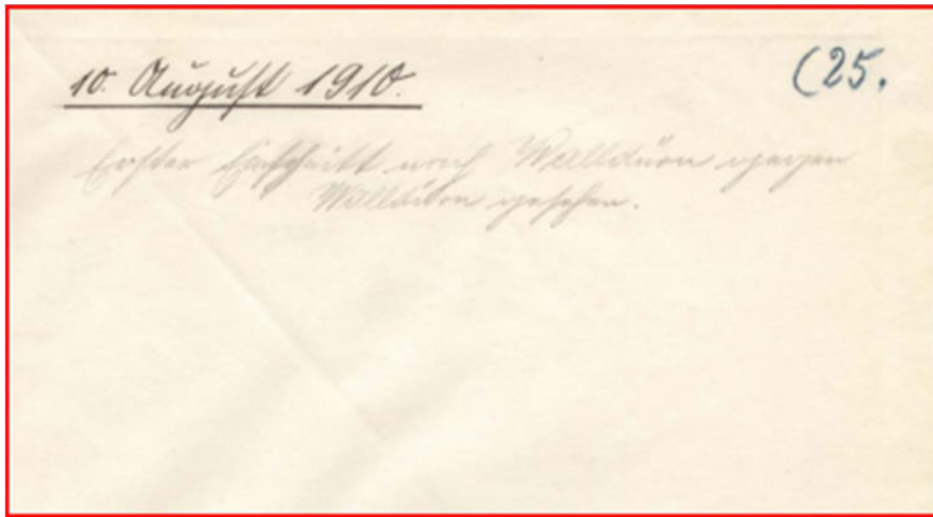 10. August 1910.
(25.
Erster Einschnitt nach Walldürn gegen
Walldürn gesehen.